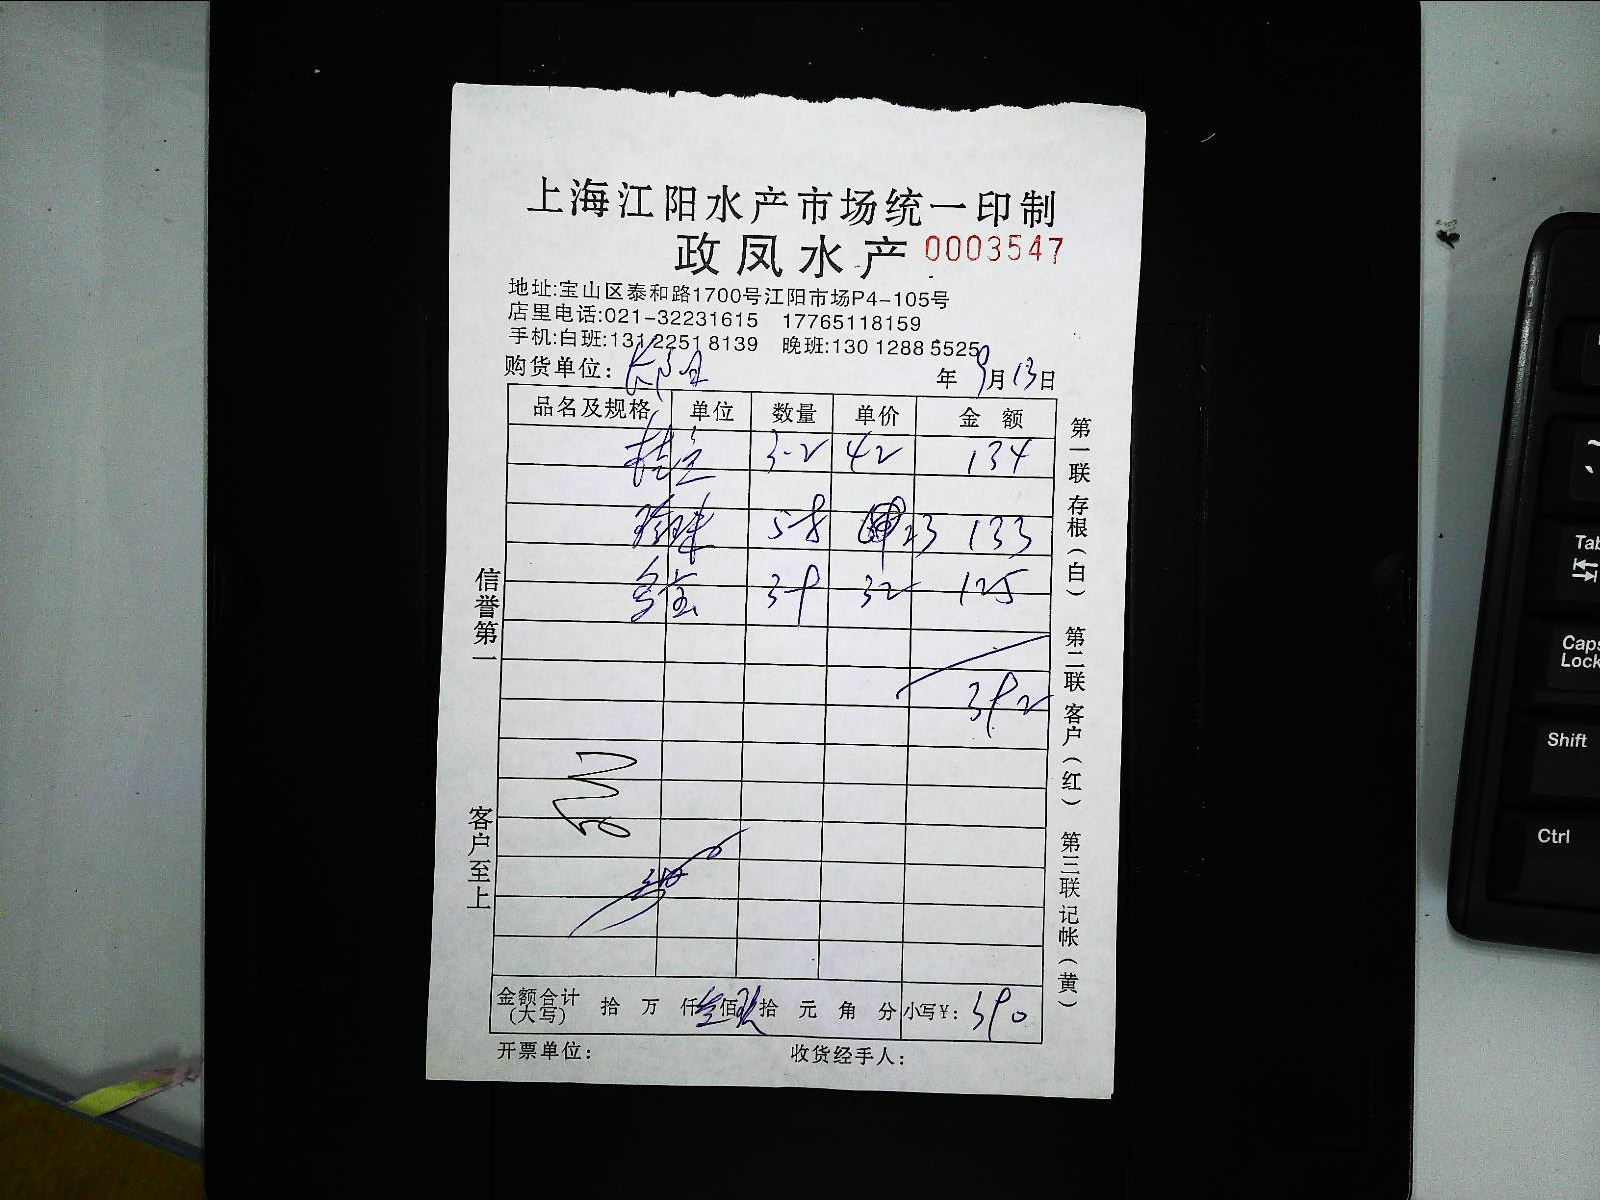 上海江阳水产市场统一印制
政凤水产 0003547
地址:宝山区泰和路1700号江阳市场P4-105号
店里电话:021-32231615 17765118159
手机:白班:131 2251 8139 晚班:130 1288 5525
购货单位: 年 9月13日
品名及规格 单位 数量 单价 金 额
3-2 42 134
5-8 23 133
39 32 125
392
金额合计(大写) 拾 万 仟叁佰玖拾 元 角 分 小写¥: 390
开票单位: 收货经手人:
信誉第一 客户至上
第一联 存根(白) 第二联 客户(红) 第三联 记帐(黄)
Tab
Caps Lock
Shift
Ctrl